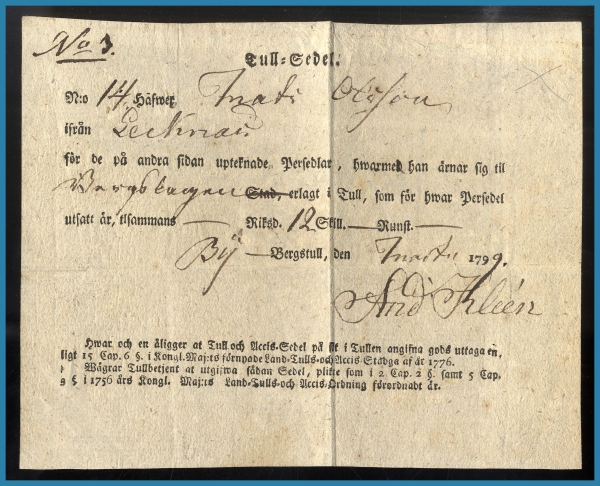 No 3.
Tull-Sedel.
N:o 14 Häfwer Mats Olsson
ifrån
för de på andra sidan upteknade Persedlar, hwarmed han ärnar sig til
Bergslagen Stad, erlagt i Tull, som för hwar Persedel
utsatt är, tilsammans — Riksd. 12 Skill. — Runst. —
By — Bergstull, den Martii 1799.
And Kleén
Hwar och en åligger at Tull och Accis-Sedel på sit i Tullen angifna gods uttaga en,
ligt 15 Cap. 6 §. i Kongl. Maj:ts förnyade Land-Tulls-och Accis Stadga af år 1776.
Wägrar Tullbetjent at utgifwa sådan Sedel, plikte som i 2 Cap. 2 §. samt 5 Cap.
9 § i 1756 års Kongl. Maj:ts Land-Tulls-och Accis-Ordning förordnadt är.